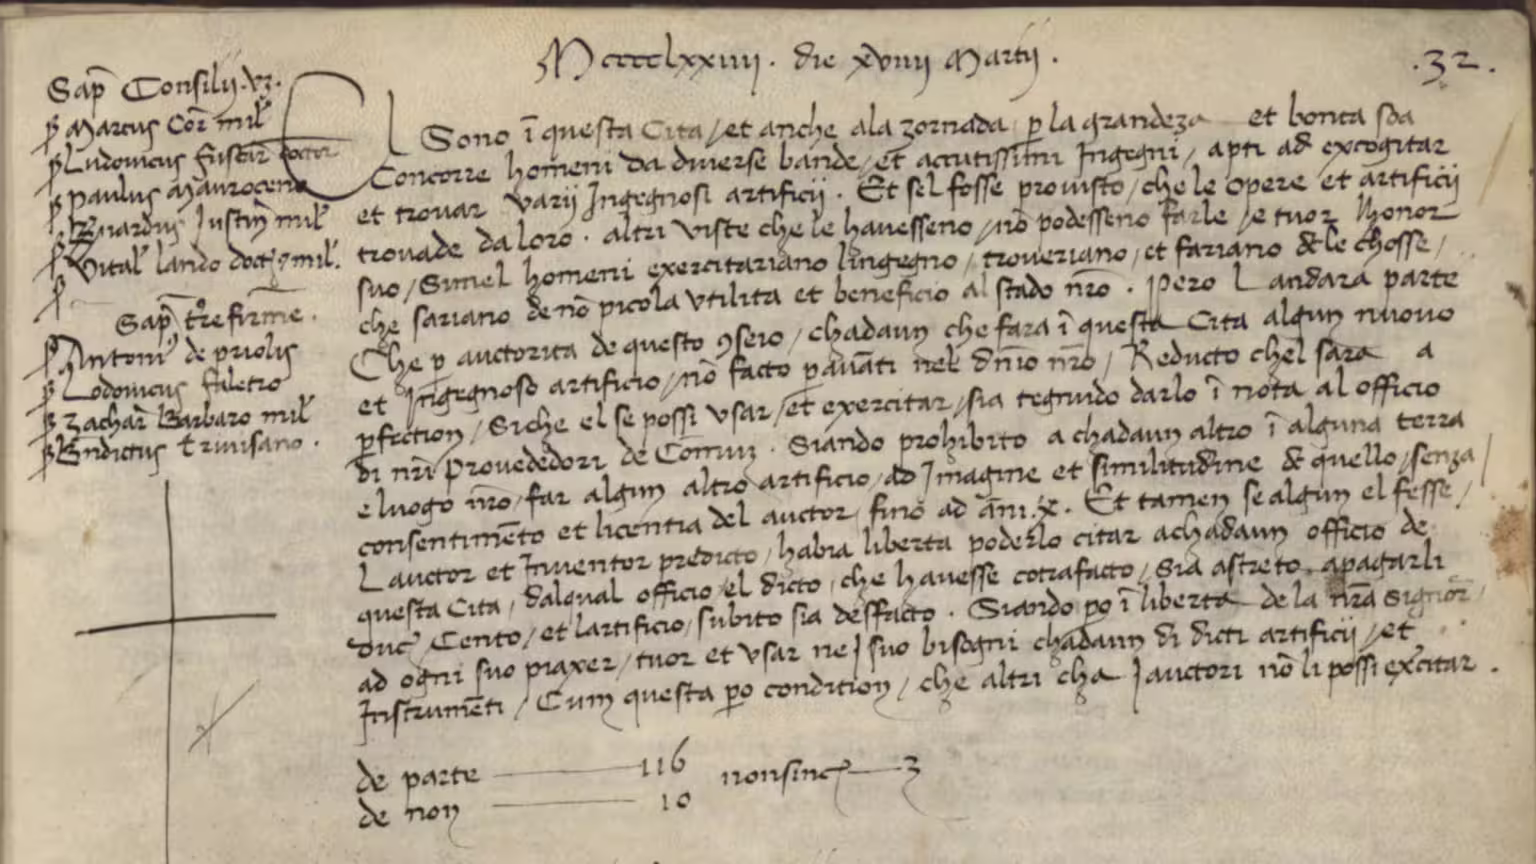 MccccLxxiiii. die xviiii Martij.
.32.
Sap̄ Consilij. vz.
ꝑ Marcus Cor̄ mil̄
ꝑ Ludovicus fuscar̄ doctor
ꝑ paulus Mauroceno
ꝑ Bn̄ardus Justin̄ mil̄
ꝑ Vital̄ lando doct. ꝫ mil̄.
ꝑ
Sap̄ t̄re firme.
ꝑ Antoniꝰ de priolis
ꝑ Lodovicus faletro
ꝑ Zachar̄ Barbaro mil̄
ꝑ Bn̄dictus trivisano.
El Sono ī questa Cita / et anche ala zornada ꝑ la grandeza et bonta soa
Concorre homeni da diverse bande / et accutissimi Ingegni / apti ad excogitar
et trovar varij Ingegnosi artificij. Et sel fosse provisto / che le opere et artificij
trovade da loro. altri viste che le havesseno / nō podesseno farle / e tuor lhonor
suo / Simel homeni exercitariano lingegno / troveriano / et fariano de le chosse /
che sariano de nō picola utilita et beneficio al stado nr̄o. Pero Landara parte
Che ꝑ auctorita de questo ꝯseio / chadaun che fara ī questa Cita algun nuovo
et Ingegnoso artificio / nō facto ꝑ avāti nel dn̄io nr̄o / Reducto chel sara a
ꝑfection / Siche el se possi usar / et exercitar / sia tegnudo darlo ī nota al officio
di nr̄i provededori de Comun. Siando prohibito a chadaun altro ī alguna terra
e luogo nr̄o / far algun altro artificio / ad Imagine et similitudine de quello / senza
consentimēto et licentia del auctor / fino ad ani .x. Et tamen se algun el fesse /
Lauctor et Inventor predicto / habia liberta poderlo citar a chadaun officio de
questa Cita / dalqual officio / el dicto / che havesse cōtrafacto / Sia astreto apagarli
duc̄ Cento / et lartificio / subito sia desfacto. Siando ꝑo ī liberta de la nr̄a Signor̄ /
ad ogni suo piaxer / tuor et usar nei suo bisogni chadaun di dicti artificij / et
Instrumēti / Cum questa ꝑo condition / che altri cha i auctori nō li possi exercitar.
de parte 116 nonsinc̄ 3
de non 10